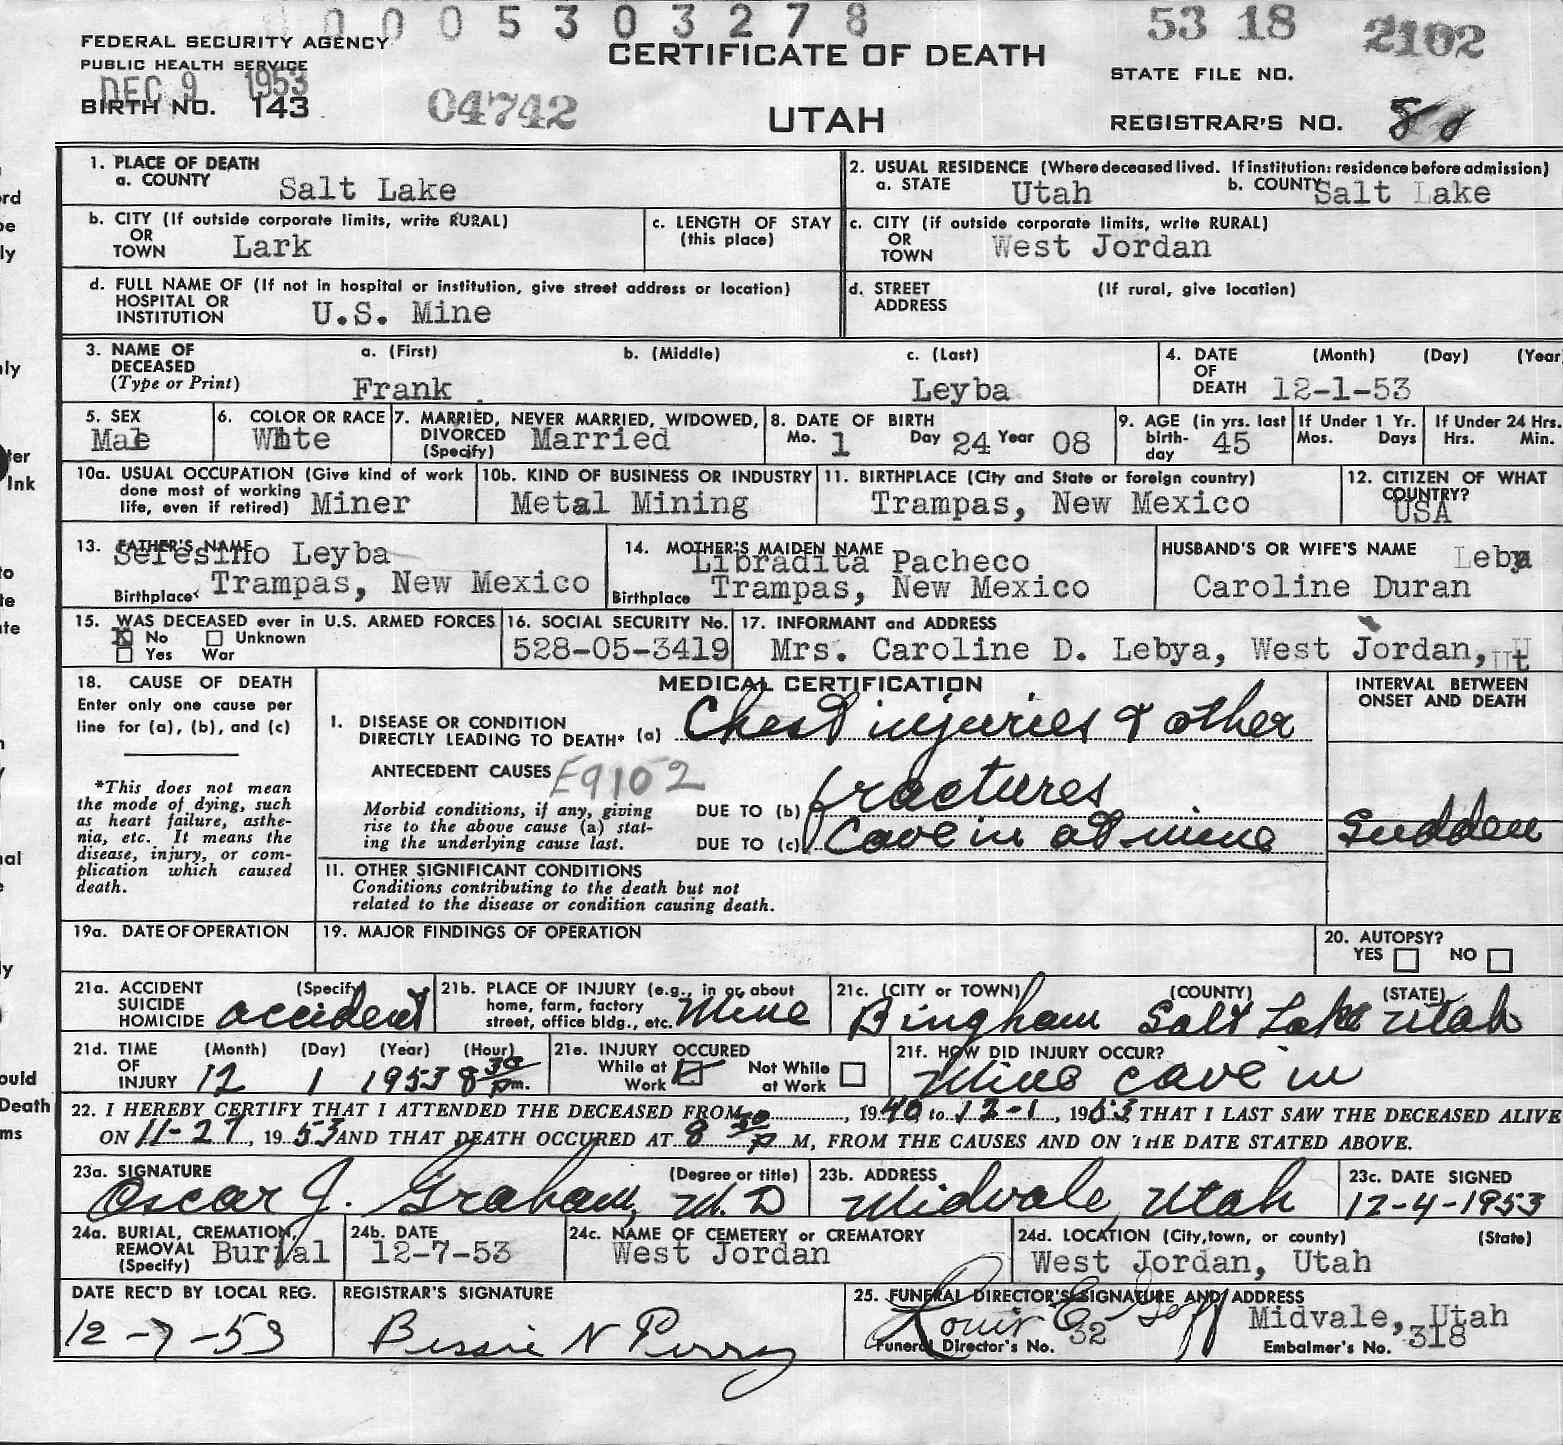 0005303278
53 18 2102
FEDERAL SECURITY AGENCY
PUBLIC HEALTH SERVICE
DEC 9 1953
BIRTH NO. 143
04742
CERTIFICATE OF DEATH
UTAH
STATE FILE NO.
REGISTRAR'S NO.
1. PLACE OF DEATH
a. COUNTY Salt Lake
2. USUAL RESIDENCE (Where deceased lived. If institution: residence before admission)
a. STATE Utah b. COUNTY Salt Lake
b. CITY (If outside corporate limits, write RURAL)
OR
TOWN Lark
c. LENGTH OF STAY
(this place)
c. CITY (if outside corporate limits, write RURAL)
OR
TOWN West Jordan
d. FULL NAME OF (If not in hospital or institution, give street address or location)
HOSPITAL OR
INSTITUTION U.S. Mine
d. STREET (If rural, give location)
ADDRESS
3. NAME OF a. (First) b. (Middle) c. (Last)
DECEASED
(Type or Print) Frank Leyba
4. DATE (Month) (Day) (Year
OF
DEATH 12-1-53
5. SEX
Male
6. COLOR OR RACE
White
7. MARRIED, NEVER MARRIED, WIDOWED,
DIVORCED Married
(Specify)
8. DATE OF BIRTH
Mo. 1 Day 24 Year 08
9. AGE (in yrs. last
birth- 45
day
If Under 1 Yr.
Mos. Days
If Under 24 Hrs.
Hrs. Min.
10a. USUAL OCCUPATION (Give kind of work
done most of working
life, even if retired) Miner
10b. KIND OF BUSINESS OR INDUSTRY
Metal Mining
11. BIRTHPLACE (City and State or foreign country)
Trampas, New Mexico
12. CITIZEN OF WHAT
COUNTRY?
USA
13. FATHER'S NAME
Seresino Leyba
Birthplace Trampas, New Mexico
14. MOTHER'S MAIDEN NAME
Libradita Pacheco
Birthplace Trampas, New Mexico
HUSBAND'S OR WIFE'S NAME Lebya
Caroline Duran
15. WAS DECEASED ever in U.S. ARMED FORCES
X No Unknown
Yes War
16. SOCIAL SECURITY No.
528-05-3419
17. INFORMANT and ADDRESS
Mrs. Caroline D. Lebya, West Jordan, Ut
18. CAUSE OF DEATH
Enter only one cause per
line for (a), (b), and (c)
*This does not mean
the mode of dying, such
as heart failure, asthe-
nia, etc. It means the
disease, injury, or com-
plication which caused
death.
MEDICAL CERTIFICATION
I. DISEASE OR CONDITION
DIRECTLY LEADING TO DEATH* (a) Chest injuries & other
ANTECEDENT CAUSES E9102
Morbid conditions, if any, giving
rise to the above cause (a) stat-
ing the underlying cause last.
DUE TO (b) fractures
DUE TO (c) Cave in at mine
II. OTHER SIGNIFICANT CONDITIONS
Conditions contributing to the death but not
related to the disease or condition causing death.
INTERVAL BETWEEN
ONSET AND DEATH
Sudden
19a. DATE OF OPERATION
19. MAJOR FINDINGS OF OPERATION
20. AUTOPSY?
YES NO
21a. ACCIDENT (Specify
SUICIDE
HOMICIDE accident
21b. PLACE OF INJURY (e.g., in or about
home, farm, factory
street, office bldg., etc. Mine
21c. (CITY or TOWN) (COUNTY) (STATE)
Bingham Salt Lake Utah
21d. TIME (Month) (Day) (Year) (Hour)
OF
INJURY 12 1 1953 8 30 p m.
21e. INJURY OCCURED
While at Work Not While at Work
21f. HOW DID INJURY OCCUR?
Mine cave in
22. I HEREBY CERTIFY THAT I ATTENDED THE DECEASED FROM, 1940 to 12-1, 1953, THAT I LAST SAW THE DECEASED ALIVE
ON 11-27, 1953 AND THAT DEATH OCCURED AT 8 30 P M, FROM THE CAUSES AND ON THE DATE STATED ABOVE.
23a. SIGNATURE (Degree or title)
Oscar J. Graham, M.D
23b. ADDRESS
Midvale, Utah
23c. DATE SIGNED
12-4-1953
24a. BURIAL, CREMATION,
REMOVAL Burial
(Specify)
24b. DATE
12-7-53
24c. NAME OF CEMETERY or CREMATORY
West Jordan
24d. LOCATION (City, town, or county) (State)
West Jordan, Utah
DATE REC'D BY LOCAL REG.
12-7-53
REGISTRAR'S SIGNATURE
Bessie N Perry
25. FUNERAL DIRECTOR'S SIGNATURE AND ADDRESS
Louis E Goff Midvale, Utah
Funeral Director's No. 32 Embalmer's No. 318